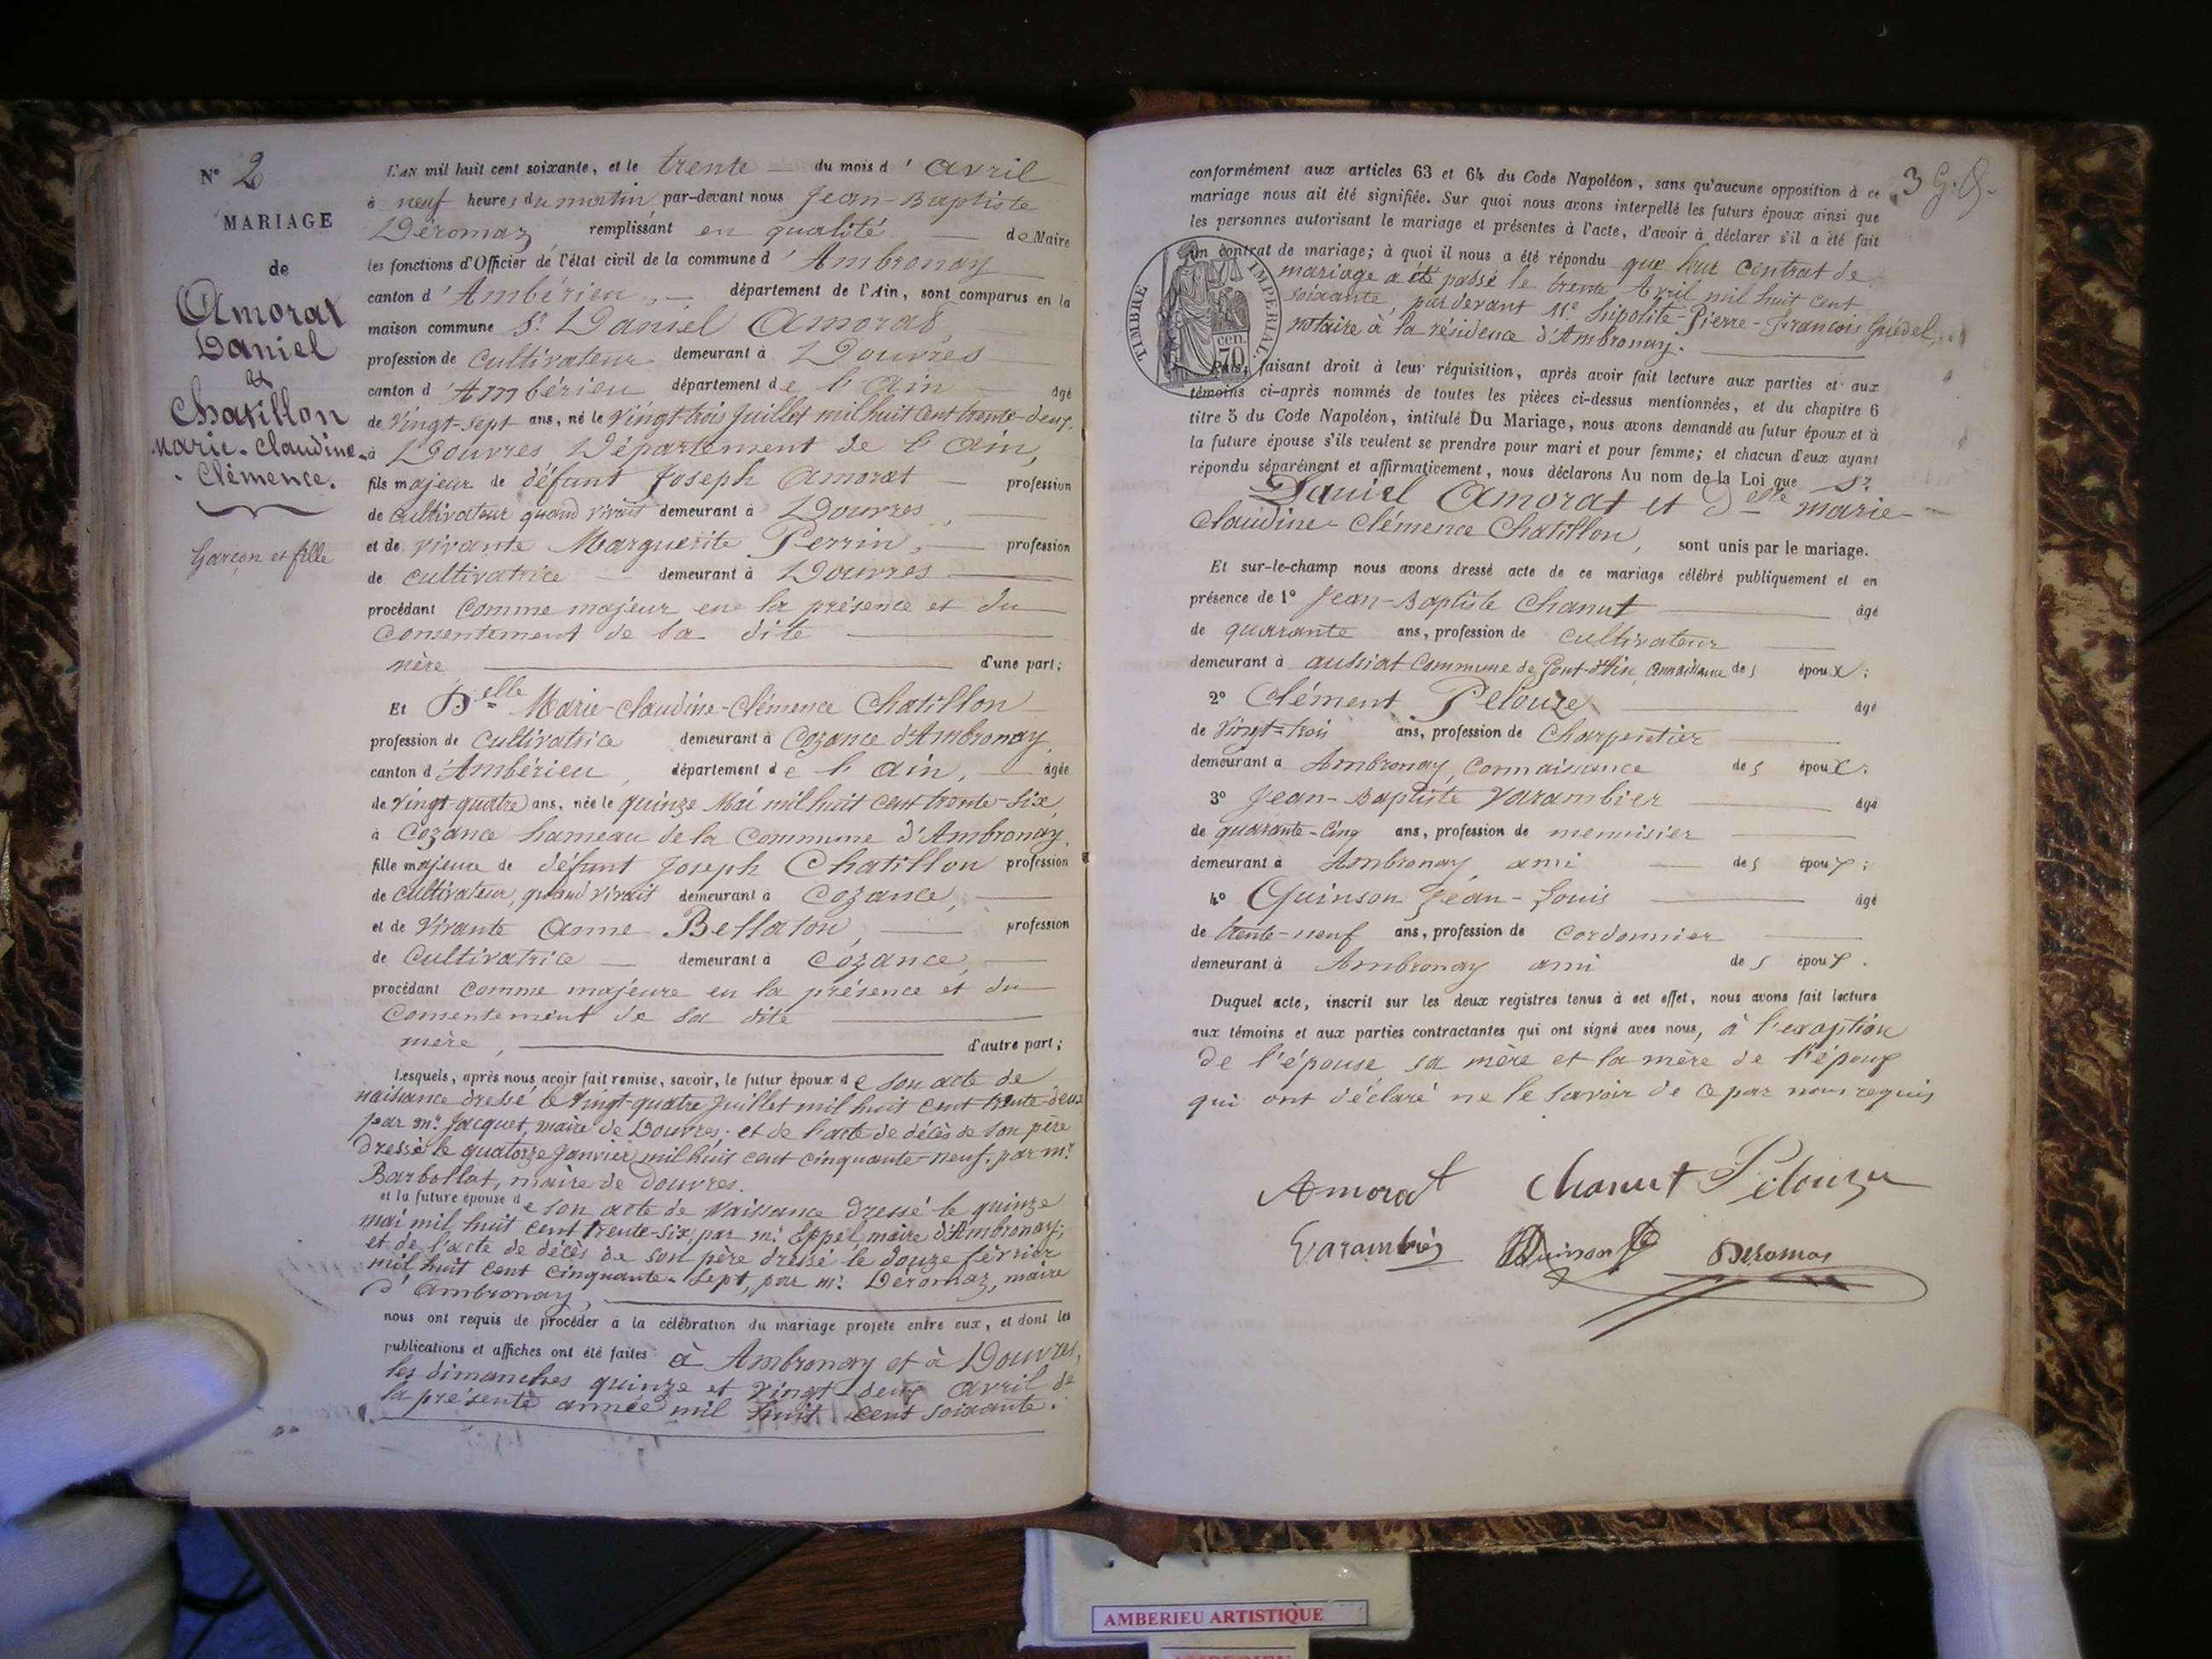 N° 2
MARIAGE
de
Amorat
Daniel
et
Chatillon
Marie-Claudine-
Clémence.
Garçon et fille
L'AN mil huit cent soixante, et le trente du mois d'Avril
à neuf heures du matin par-devant nous Jean-Baptiste
Déromaz remplissant en qualité de Maire
les fonctions d'Officier de l'état civil de la commune d'Ambronay
canton d'Ambérieu, département de l'Ain, sont comparus en la
maison commune Sr Daniel Amorat
profession de Cultivateur demeurant à Douvres
canton d'Ambérieu département de l'Ain âgé
de vingt-sept ans, né le vingt-trois Juillet mil huit cent trente-deux.
à Douvres, Département de l'Ain,
fils majeur de défunt Joseph Amorat profession
de Cultivateur quand vivait demeurant à Douvres,
et de vivante Marguerite Perrin, profession
de Cultivatrice demeurant à Douvres
procédant Comme majeur en la présence et du
Consentement de sa dite
mère d'une part;
Et Delle Marie-Claudine-Clémence Chatillon
profession de Cultivatrice demeurant à Cozance d'Ambronay,
canton d'Ambérieu, département de l'Ain, âgée
de vingt-quatre ans, née le quinze Mai mil huit cent trente-six,
à Cozance hameau de la Commune d'Ambronay,
fille majeure de défunt Joseph Chatillon profession
de Cultivateur, quand vivait demeurant à Cozance,
et de vivante Anne Bellaton, profession
de Cultivatrice demeurant à Cozance,
procédant Comme majeure en la présence et du
Consentement de sa dite
mère, d'autre part;
Lesquels, après nous avoir fait remise, savoir, le futur époux de son acte de
naissance dressé le vingt-quatre Juillet mil huit cent trente-deux
par mr. Jacquet, maire de Douvres; et de l'acte de décès de son père
dressé le quatorze Janvier mil huit cent cinquante-neuf, par mr.
Barbollat, maire de Douvres.
et la future épouse de son acte de Naissance dressé le quinze
mai mil huit cent trente-six, par mr. Eppel, maire d'Ambronay;
et de l'acte de décès de son père dressé le douze février
mil huit cent cinquante-sept, par mr. Déromaz, maire
d'Ambronay,
nous ont requis de procéder à la célébration du mariage projeté entre eux, et dont les
publications et affiches ont été faites à Ambronay et à Douvres,
les dimanches quinze et vingt-deux Avril de
la présente année mil huit cent soixante.
3
conformément aux articles 63 et 64 du Code Napoléon, sans qu'aucune opposition à ce
mariage nous ait été signifiée. Sur quoi nous avons interpellé les futurs époux ainsi que
les personnes autorisant le mariage et présentes à l'acte, d'avoir à déclarer s'il a été fait
un contrat de mariage; à quoi il nous a été répondu que leur Contrat de
mariage a été passé le trente Avril mil huit cent
soixante, par devant Me. Hipolite-Pierre-François Guédel,
notaire à la résidence d'Ambronay.
TIMBRE IMPERIAL.
70 cen.
Puis, faisant droit à leur réquisition, après avoir fait lecture aux parties et aux
témoins ci-après nommés de toutes les pièces ci-dessus mentionnées, et du chapitre 6
titre 5 du Code Napoléon, intitulé Du Mariage, nous avons demandé au futur époux et à
la future épouse s'ils veulent se prendre pour mari et pour femme; et chacun d'eux ayant
répondu séparément et affirmativement, nous déclarons Au nom de la Loi que Sr.
Daniel Amorat et Delle Marie-
Claudine-Clémence Chatillon, sont unis par le mariage.
Et sur-le-champ nous avons dressé acte de ce mariage célébré publiquement et en
présence de 1° Jean-Baptiste Chanut âgé
de quarante ans, profession de Cultivateur
demeurant à aussiat Commune de Pont-d'Ain, Connaissance des époux;
2° Clément Pelouze, âgé
de vingt-trois ans, profession de Charpentier
demeurant à Ambronay, Connaissance des époux;
3° Jean-Baptiste Varambier âgé
de quarante-cinq ans, profession de menuisier
demeurant à Ambronay, ami des époux;
4° Quinson Jean-Louis âgé
de trente-neuf ans, profession de Cordonnier
demeurant à Ambronay ami des époux.
Duquel acte, inscrit sur les deux registres tenus à cet effet, nous avons fait lecture
aux témoins et aux parties contractantes qui ont signé avec nous, à l'exception
de l'épouse sa mère et la mère de l'époux
qui ont déclaré ne le savoir de ce par nous requis
Amorat Chanut Pélouze
Varambier Quinson Déromas
AMBERIEU ARTISTIQUE